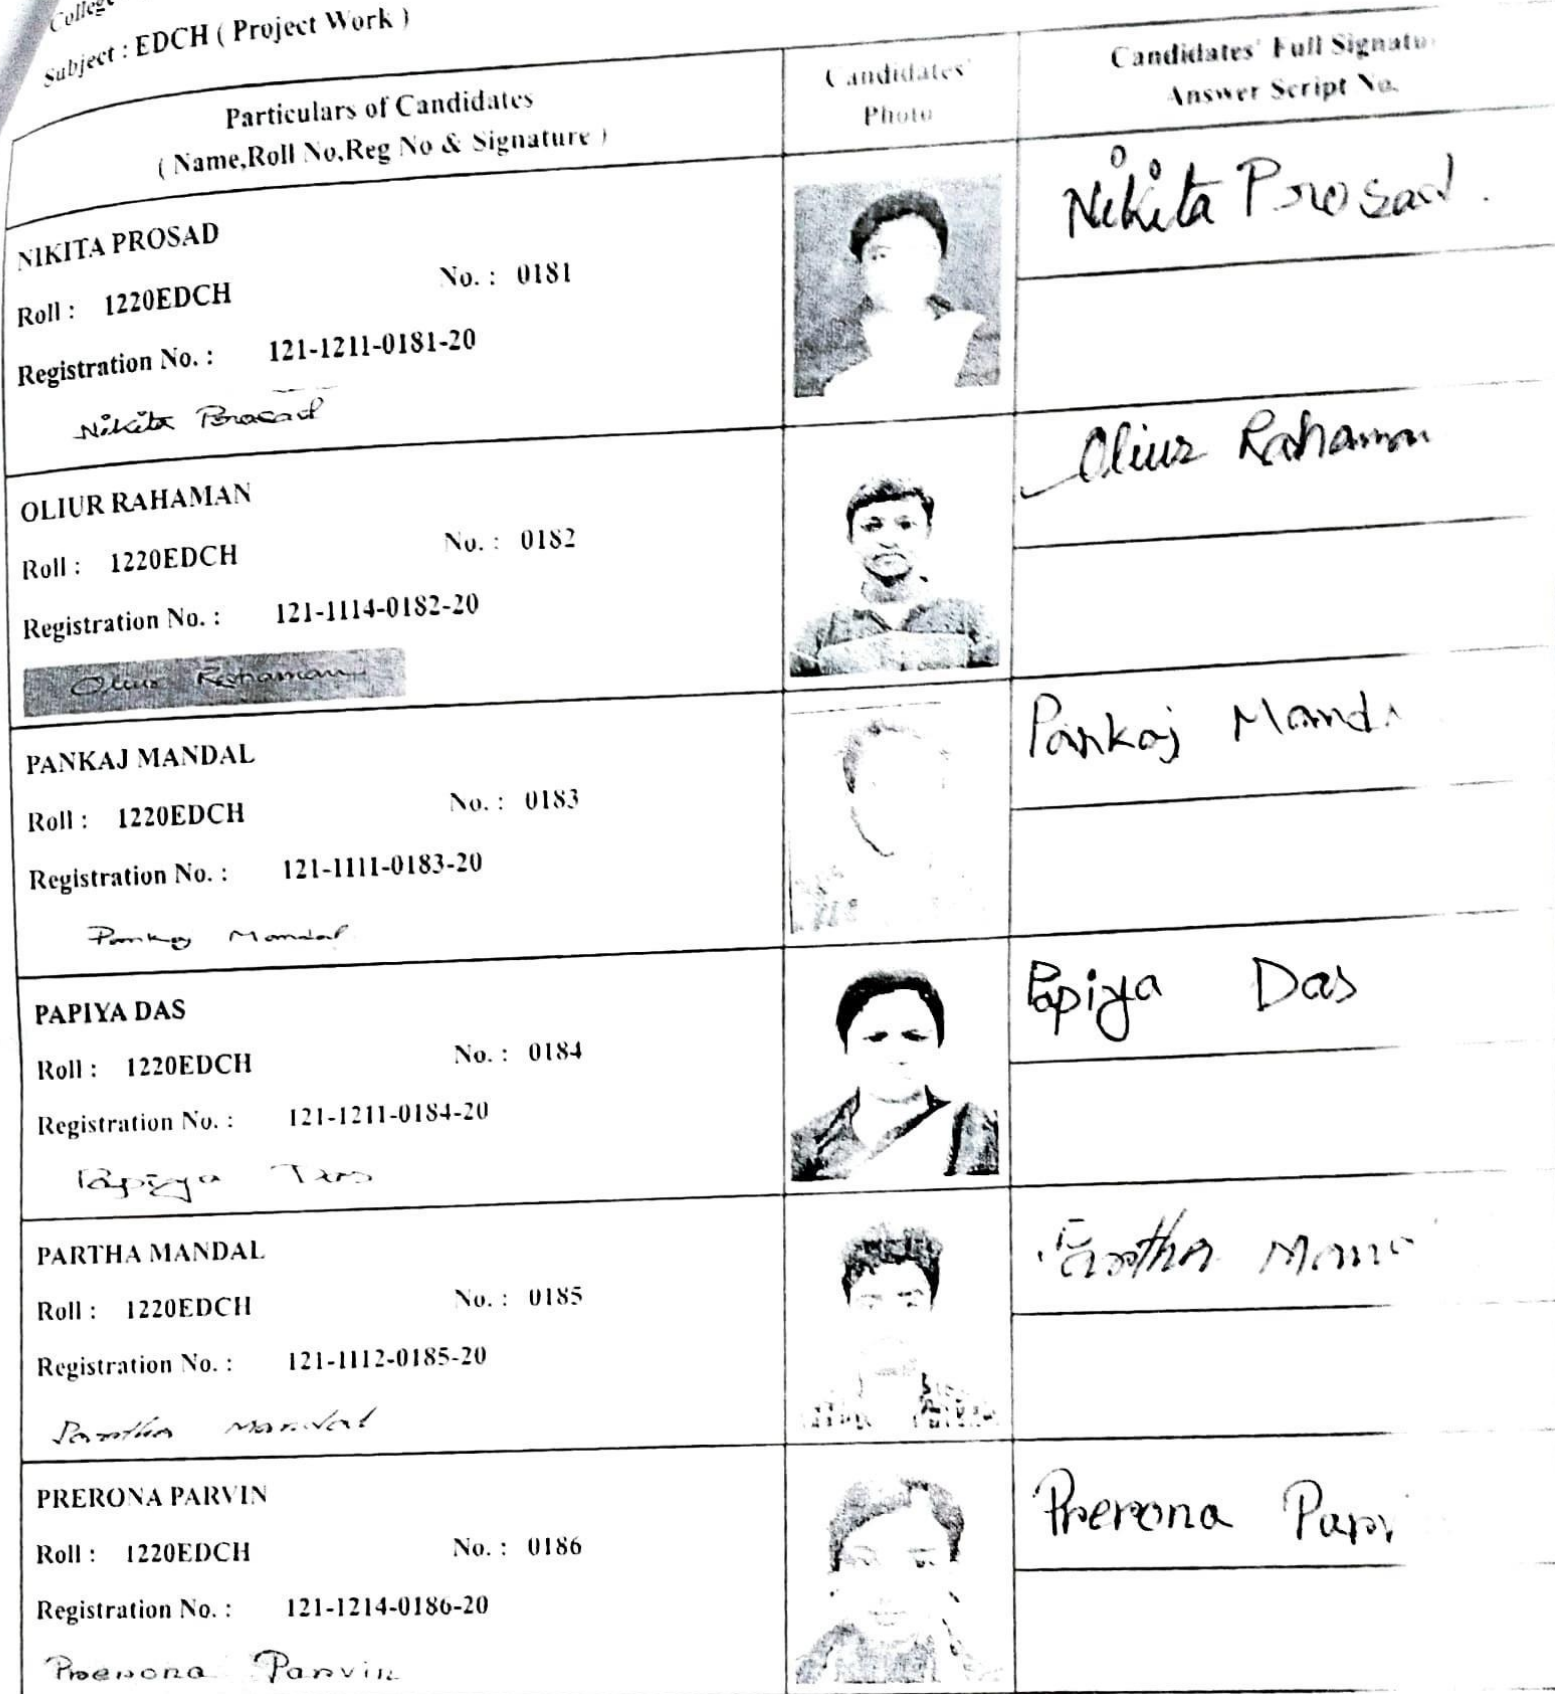 College
Subject : EDCH ( Project Work )
Particulars of Candidates
( Name,Roll No,Reg No & Signature )
Candidates'
Photo
Candidates' Full Signatu
Answer Script No.
NIKITA PROSAD
Roll : 1220EDCH No. : 0181
Registration No. : 121-1211-0181-20
Nikita Prosad
Nikita Prosad .
OLIUR RAHAMAN
Roll : 1220EDCH No. : 0182
Registration No. : 121-1114-0182-20
Oliur Rahaman
Oliur Rahaman
PANKAJ MANDAL
Roll : 1220EDCH No. : 0183
Registration No. : 121-1111-0183-20
Pankaj Mandal
Pankaj Manda
PAPIYA DAS
Roll : 1220EDCH No. : 0184
Registration No. : 121-1211-0184-20
Papiya Das
Papiya Das
PARTHA MANDAL
Roll : 1220EDCH No. : 0185
Registration No. : 121-1112-0185-20
Partha Mandal
Partha Man
PRERONA PARVIN
Roll : 1220EDCH No. : 0186
Registration No. : 121-1214-0186-20
Prerona Parvin
Prerona Parv